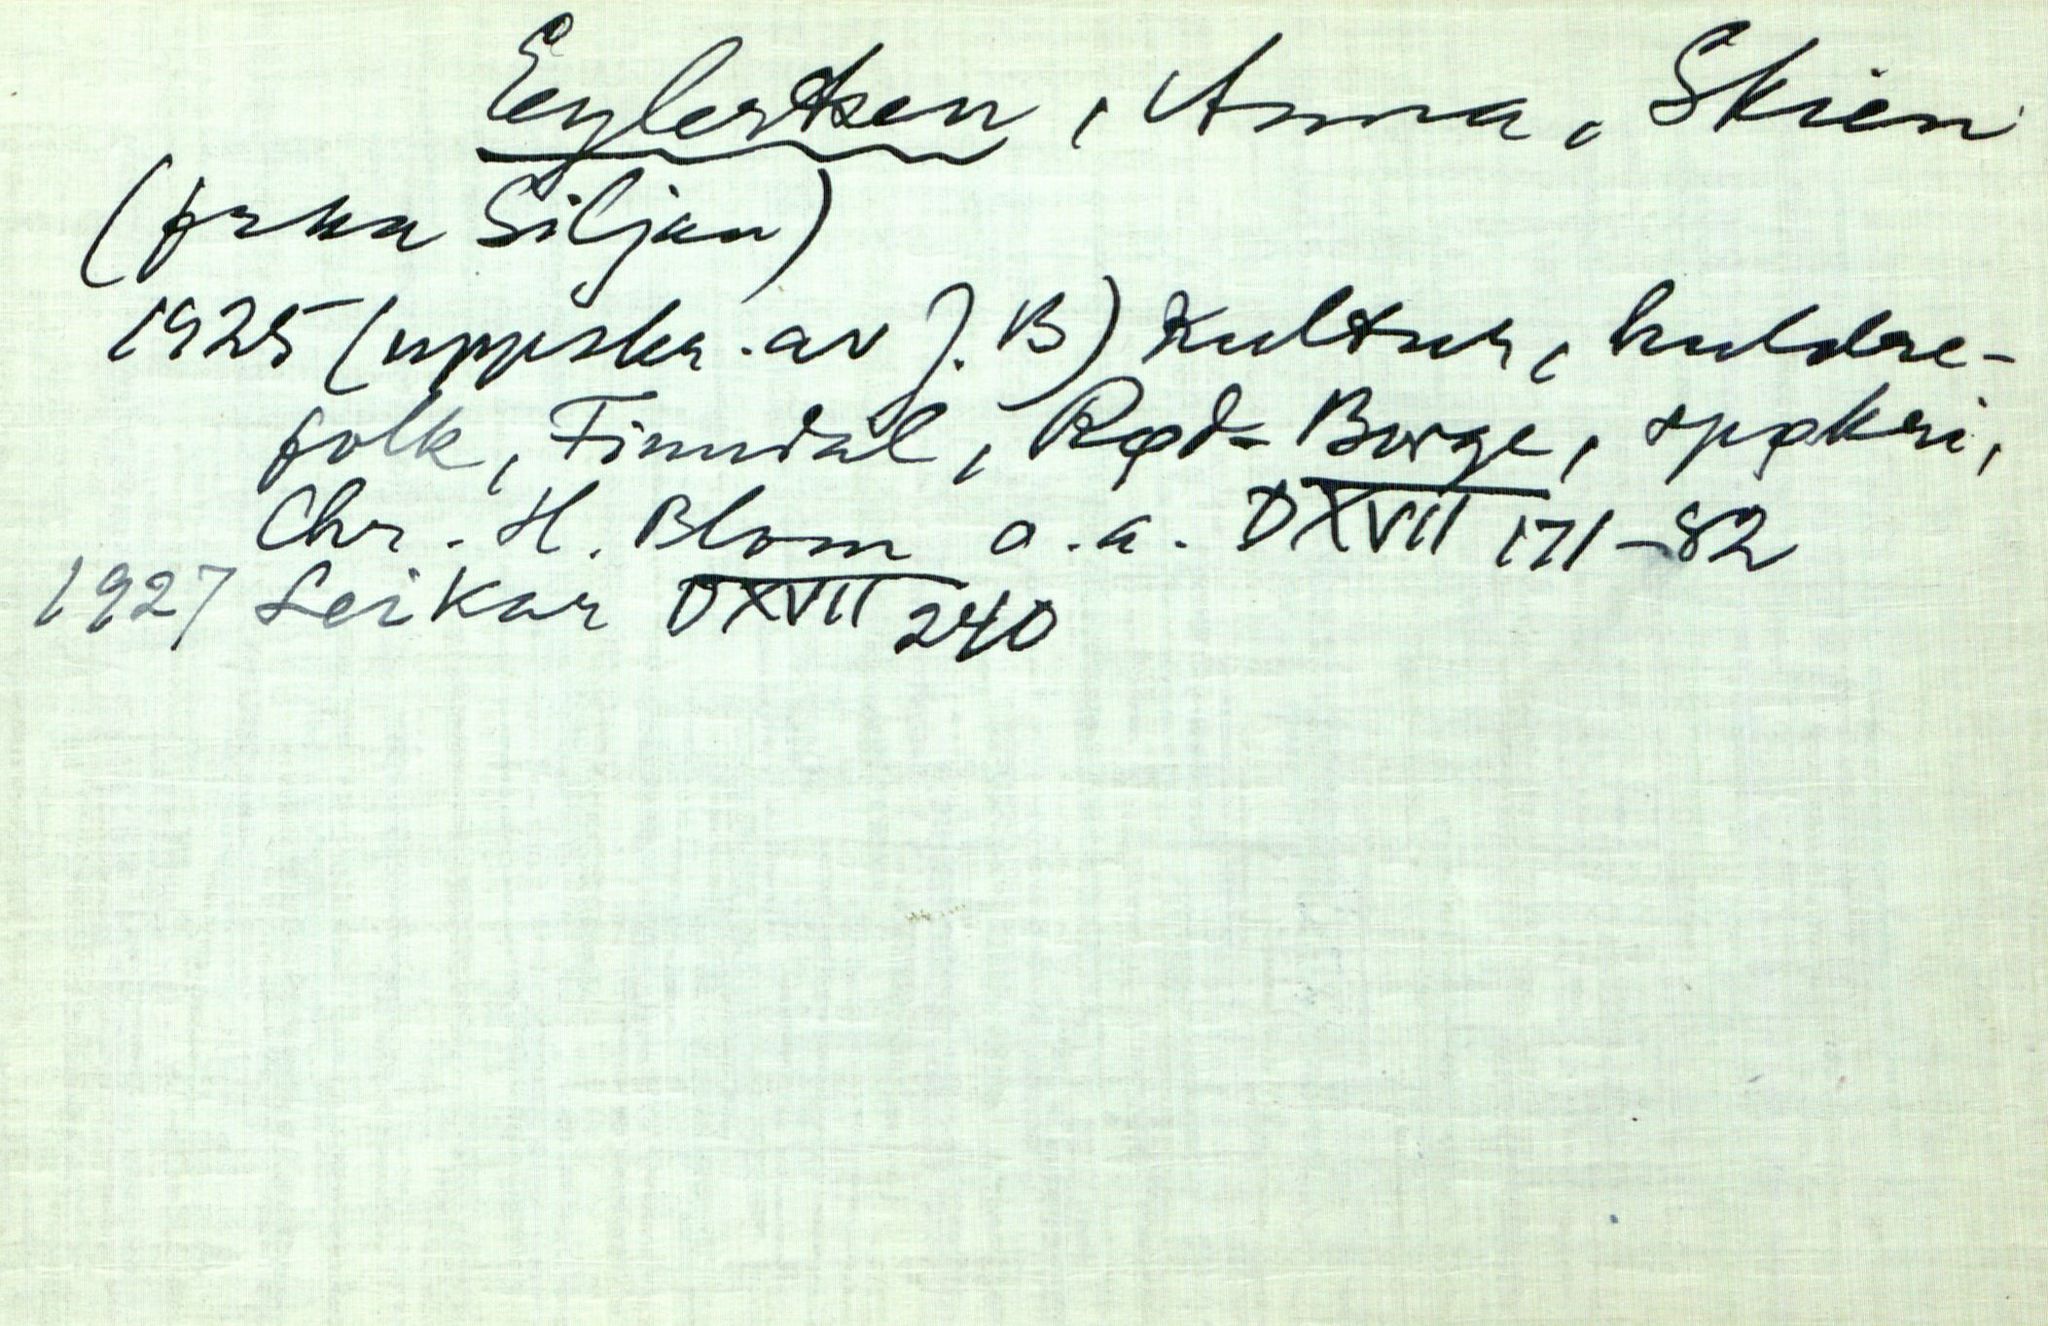 Eylertsen, Anna, Skien
(frå Siljan)
1925 (uppskr. av J. B) Kultur, huldre-
folk, Finndal, Rød-Borge, spøkri,
Chr. H. Blom o.a. D XVII 171-82
1927 Leikar D XVII 240